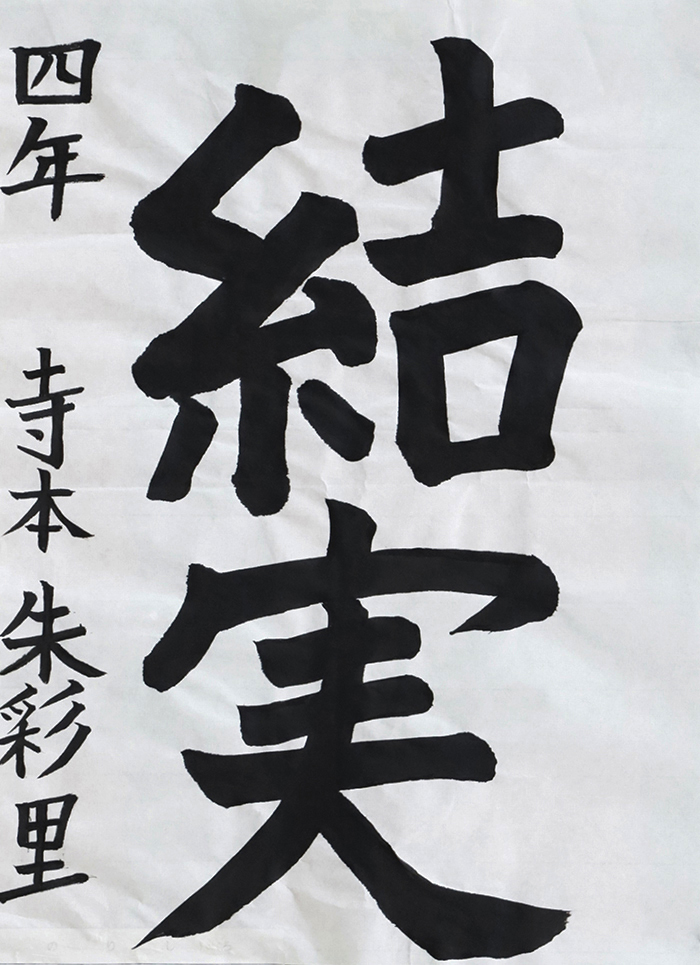 結実
四年 寺本朱彩里